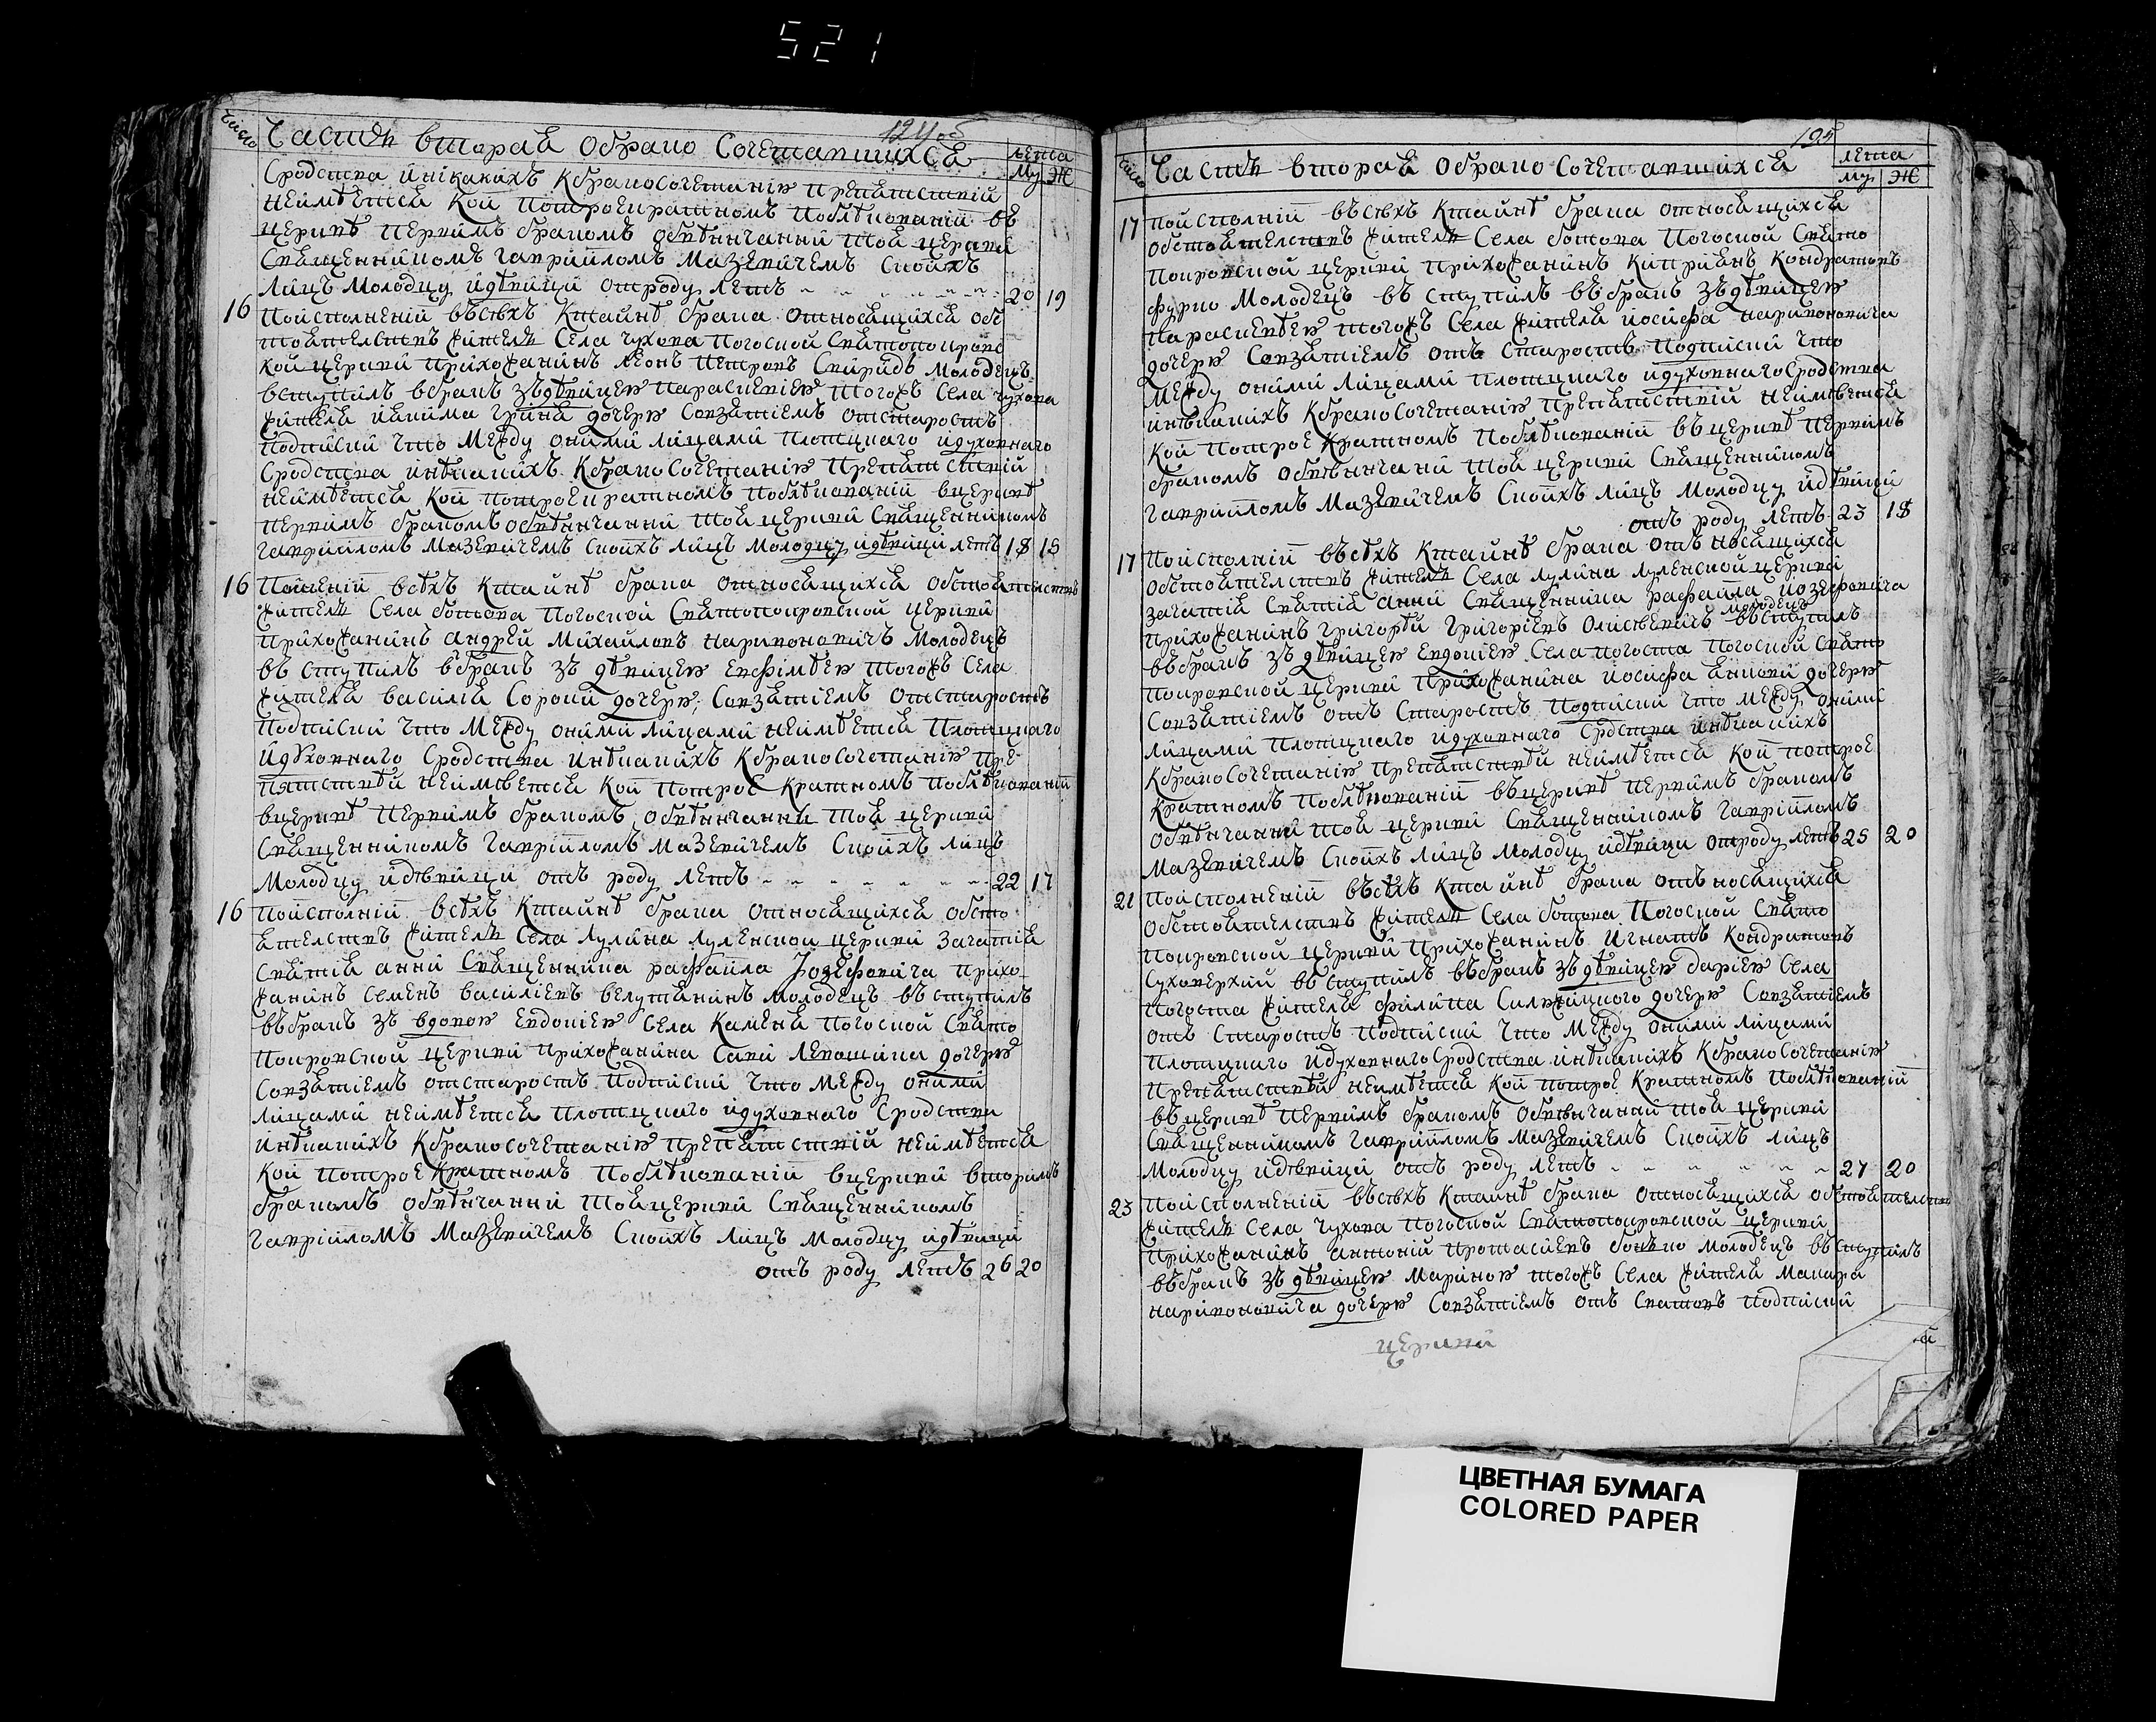 521
Число
124 об
Часть вторая о брако Сочетавшихся
лѣта
Му Ж
Сродства и ніканихъ К бракосочетанію препятствій
неимѣется Кой потроекратномъ поблікованій въ
церквѣ первимъ бракомъ обвѣнчанни тоя церкви
Священнікомъ Гаврііломъ Мазевичемъ Своихъ
лицъ Молодцу и двѣици отроду летъ 20 19
16 Поисполненій всѣхъ Ктайнѣ брака относящихся обс
тоятелствъ житель Села чухова Погосной Святопокровс
кой церкви прихожанинъ леонъ петровъ Свиридъ молодецъ
вступилъ вбракъ зъ двѣицею Параскевіею тогожъ Села чухова
жителя якима грина дочерю Совзятіемъ отстаростъ
подписки что Между оними лицами плотцкаго и духовнаго
Сродства инѣкакихъ К бракосочетанію препятствій
неимѣется кой потроекратномъ поблѣкованій вцерквѣ
первимъ бракомъ обвѣнчанни тоя церкви Священнікомъ
Гаврііломъ Мазевичемъ Своихъ лицъ молодцу и двѣици летъ 18 18
16 Поисненій всѣхъ Ктайнѣ брака относящихся обстоятелствъ
житель Села ботова Погосной Святопокровской церкви
прихожанинъ андрей Михайловъ Наривоновичъ молодецъ
въ ступилъ вбракъ зъ двѣицею Евфімѣею тогожъ Села
жителя василія Сороки дочерю, Совзятіемъ отстаростъ
подписки что Между оними лицами неимѣется плотцкаго
и духовнаго Сродства инѣкакихъ К бракосочетанію пре-
пятствѣй неимѣется Кой потрое Кратномъ поблѣкованій
вцерквѣ первимъ бракомъ обвѣнчанни тоя церкви
Священнікомъ Гаврііломъ Мазевичемъ Своихъ лицъ
молодцу и двѣици отъ роду летъ 22 17
16 Поисполній всѣхъ Ктайнѣ брака относящихся обсто
ятелствъ житель Села лулина луленской церкви Зачатія
Святія анни Священника рафаила Јозефовича прихо
жанинъ Семенъ василіевъ велутянинъ молодецъ въ ступилъ
въбракъ зъ вдовою Евдокіею Села Каменя Погосной Свято
покровской церкви прихожанина Сави левошика дочерю
Совзятіемъ отстаростъ подписки что между оними
лицами неимѣется плотцкаго и духовнаго Сродства
инѣкакихъ К бракосочетанію препятствій неимѣется
кой потроекратномъ поблѣкованій вцеркви вторимъ
бракомъ обвѣнчанни тояцеркви Священнікомъ
Гаврііломъ Мазевичемъ Своихъ лицъ молодцу и двѣици
отъ роду летъ 26 20
125
Число
Часть вторая о брако Сочетавшихся
лѣта
Му Ж
17 Поисполній въсѣхъ Ктайнѣ брака относящихся
обстоятелствъ житель Села ботова Погосной Свято
покровской церкви прихожанинъ Кипріянъ Кондратовъ
фурко Молодецъ въ ступилъ въбракъ зъ двѣицею
Параскевѣею тогожъ Села жителя иосифа наривоновича
дочерю Совзятіемъ отъ старостъ подписки что
Между оними лицами плотцкаго и духовнаго Сродства
инѣкакихъ К бракосочетанію препятствій неимѣется
Кой потрое Кратномъ поблѣкованій въ церквѣ первимъ
бракомъ обвѣнчани тоя церкви Священнікомъ
Гаврііломъ Мазевичемъ Своихъ лицъ молодцу и двѣици
отъ роду летъ 23 18
17 Поисполній въсѣхъ Ктайнѣ брака отъ носящихся
обстоятелствъ житель Села лулина луленской церкви
зачатія Святія анни Священника рафаила иозефовича
прихожанинъ Григорѣй Григоріевъ Олисѣевичъ молодецъ въступилъ
въбракъ зъ двѣицею Евдокіею Села погоста Погосной Свято
покровской церкви прихожанина иосифа дочерю
Совзятіемъ отъ старостъ подписки что между оними
лицами плотцкаго и духовнаго Срдства инѣкакихъ
К бракосочетанію препятствѣй неимѣется кой потрое
кратномъ поблѣкованій въцерквѣ первимъ бракомъ
обвѣнчанни тоя церкви Священнікомъ Гаврііломъ
Мазевичемъ Своихъ лицъ молодцу и двѣици отроду летъ 25 20
21 Поисполненій въсѣхъ Ктайнѣ брака отъ носящихся
обстоятелствъ житель Села ботова Погосной Свято
покровской церкви прихожанинъ Игнатъ Кондратовъ
Суховерхій въ ступилъ въбракъ зъ двѣицею даріею Села
погоста жителя филипа дочерю Совзятіемъ
отъ старостъ подписки что Между оними лицами
плотцкаго и духовнаго Сродства инѣкакихъ К бракосочетанію
препятствѣй неимѣется кой потрое кратномъ поблѣкованій
въ церквѣ первимъ бракомъ обвѣнчанни тоя церкви
Священнікомъ Гаврііломъ Мазевичемъ Своихъ лицъ
молодцу и двѣици отъ роду летъ 27 20
23 Поисполненій въсѣхъ Ктайнѣ брака относящихся обстоятелствъ
житель Села чухова Погосной Святопокровской церкви
прихожанинъ антоній протасіевъ бонько молодецъ въ ступилъ
въбракъ зъ двѣицею Мариною тогожъ Села жителя Макара
наривоновича дочерю Совзятіемъ отъ Сватовъ подписки
церкви
ЦВЕТНАЯ БУМАГА
COLORED PAPER